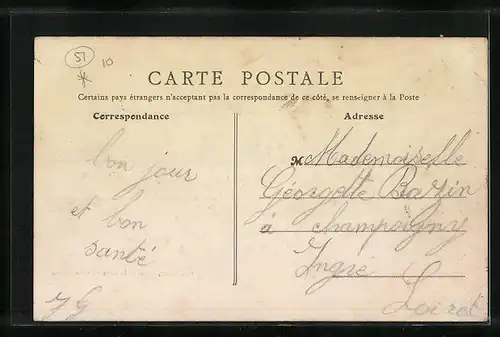 51 10
CARTE POSTALE
Certains pays étrangers n'acceptant pas la correspondance de ce côté, se renseigner à la Poste
Correspondance
bon jour
et bon
santé
J G
Adresse
M Mademoiselle
Georgette Bazin
à champoigny
Ingré
Loiret